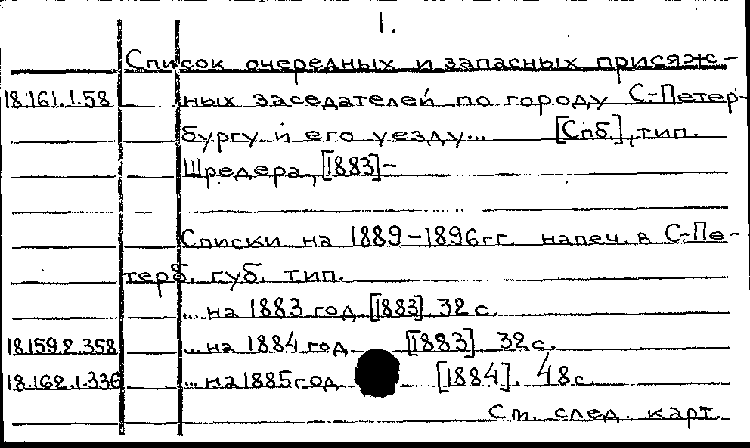 1.
Список очередных и запасных присяж-
18.161.1.58 ных заседателей по городу С.-Петер-
бургу и его уезду... [Спб.], тип.
Шредера, [1883]-
Списки на 1889-1896 гг. напеч. в С-Пе-
терб. губ. тип.
... на 1883 год. [1883]. 32 с.
18.159.2.358 ... на 1884 год. [1883]. 32 с.
18.162.1.336 ... на 1885 год. [1884]. 48 с.
См. след. карт.